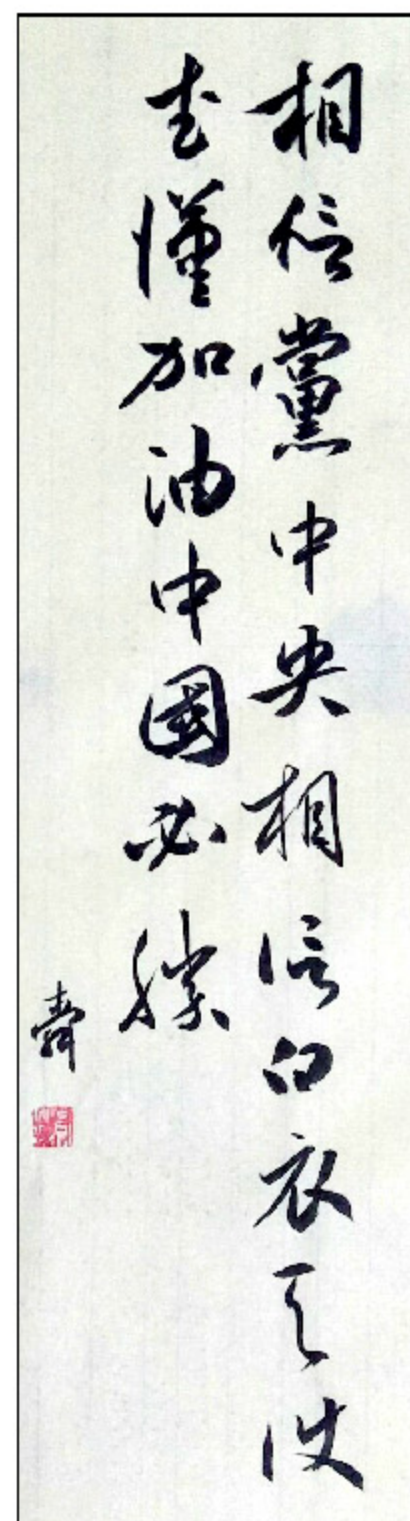 相信黨中央相信白衣天使
武漢加油中國必勝